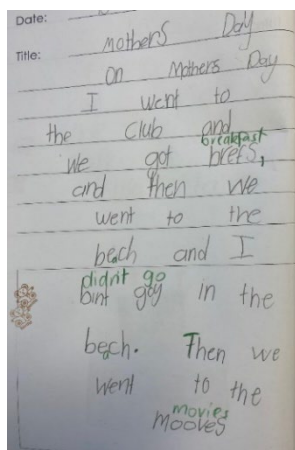 Date:
Mothers Day
Title:
On Mothers Day
I went to
the club and
breakfast
we got brefs,
and then we
went to the
bech and I
didnt go
bint goy in the
bech. Then we
went to the
movies
mooves